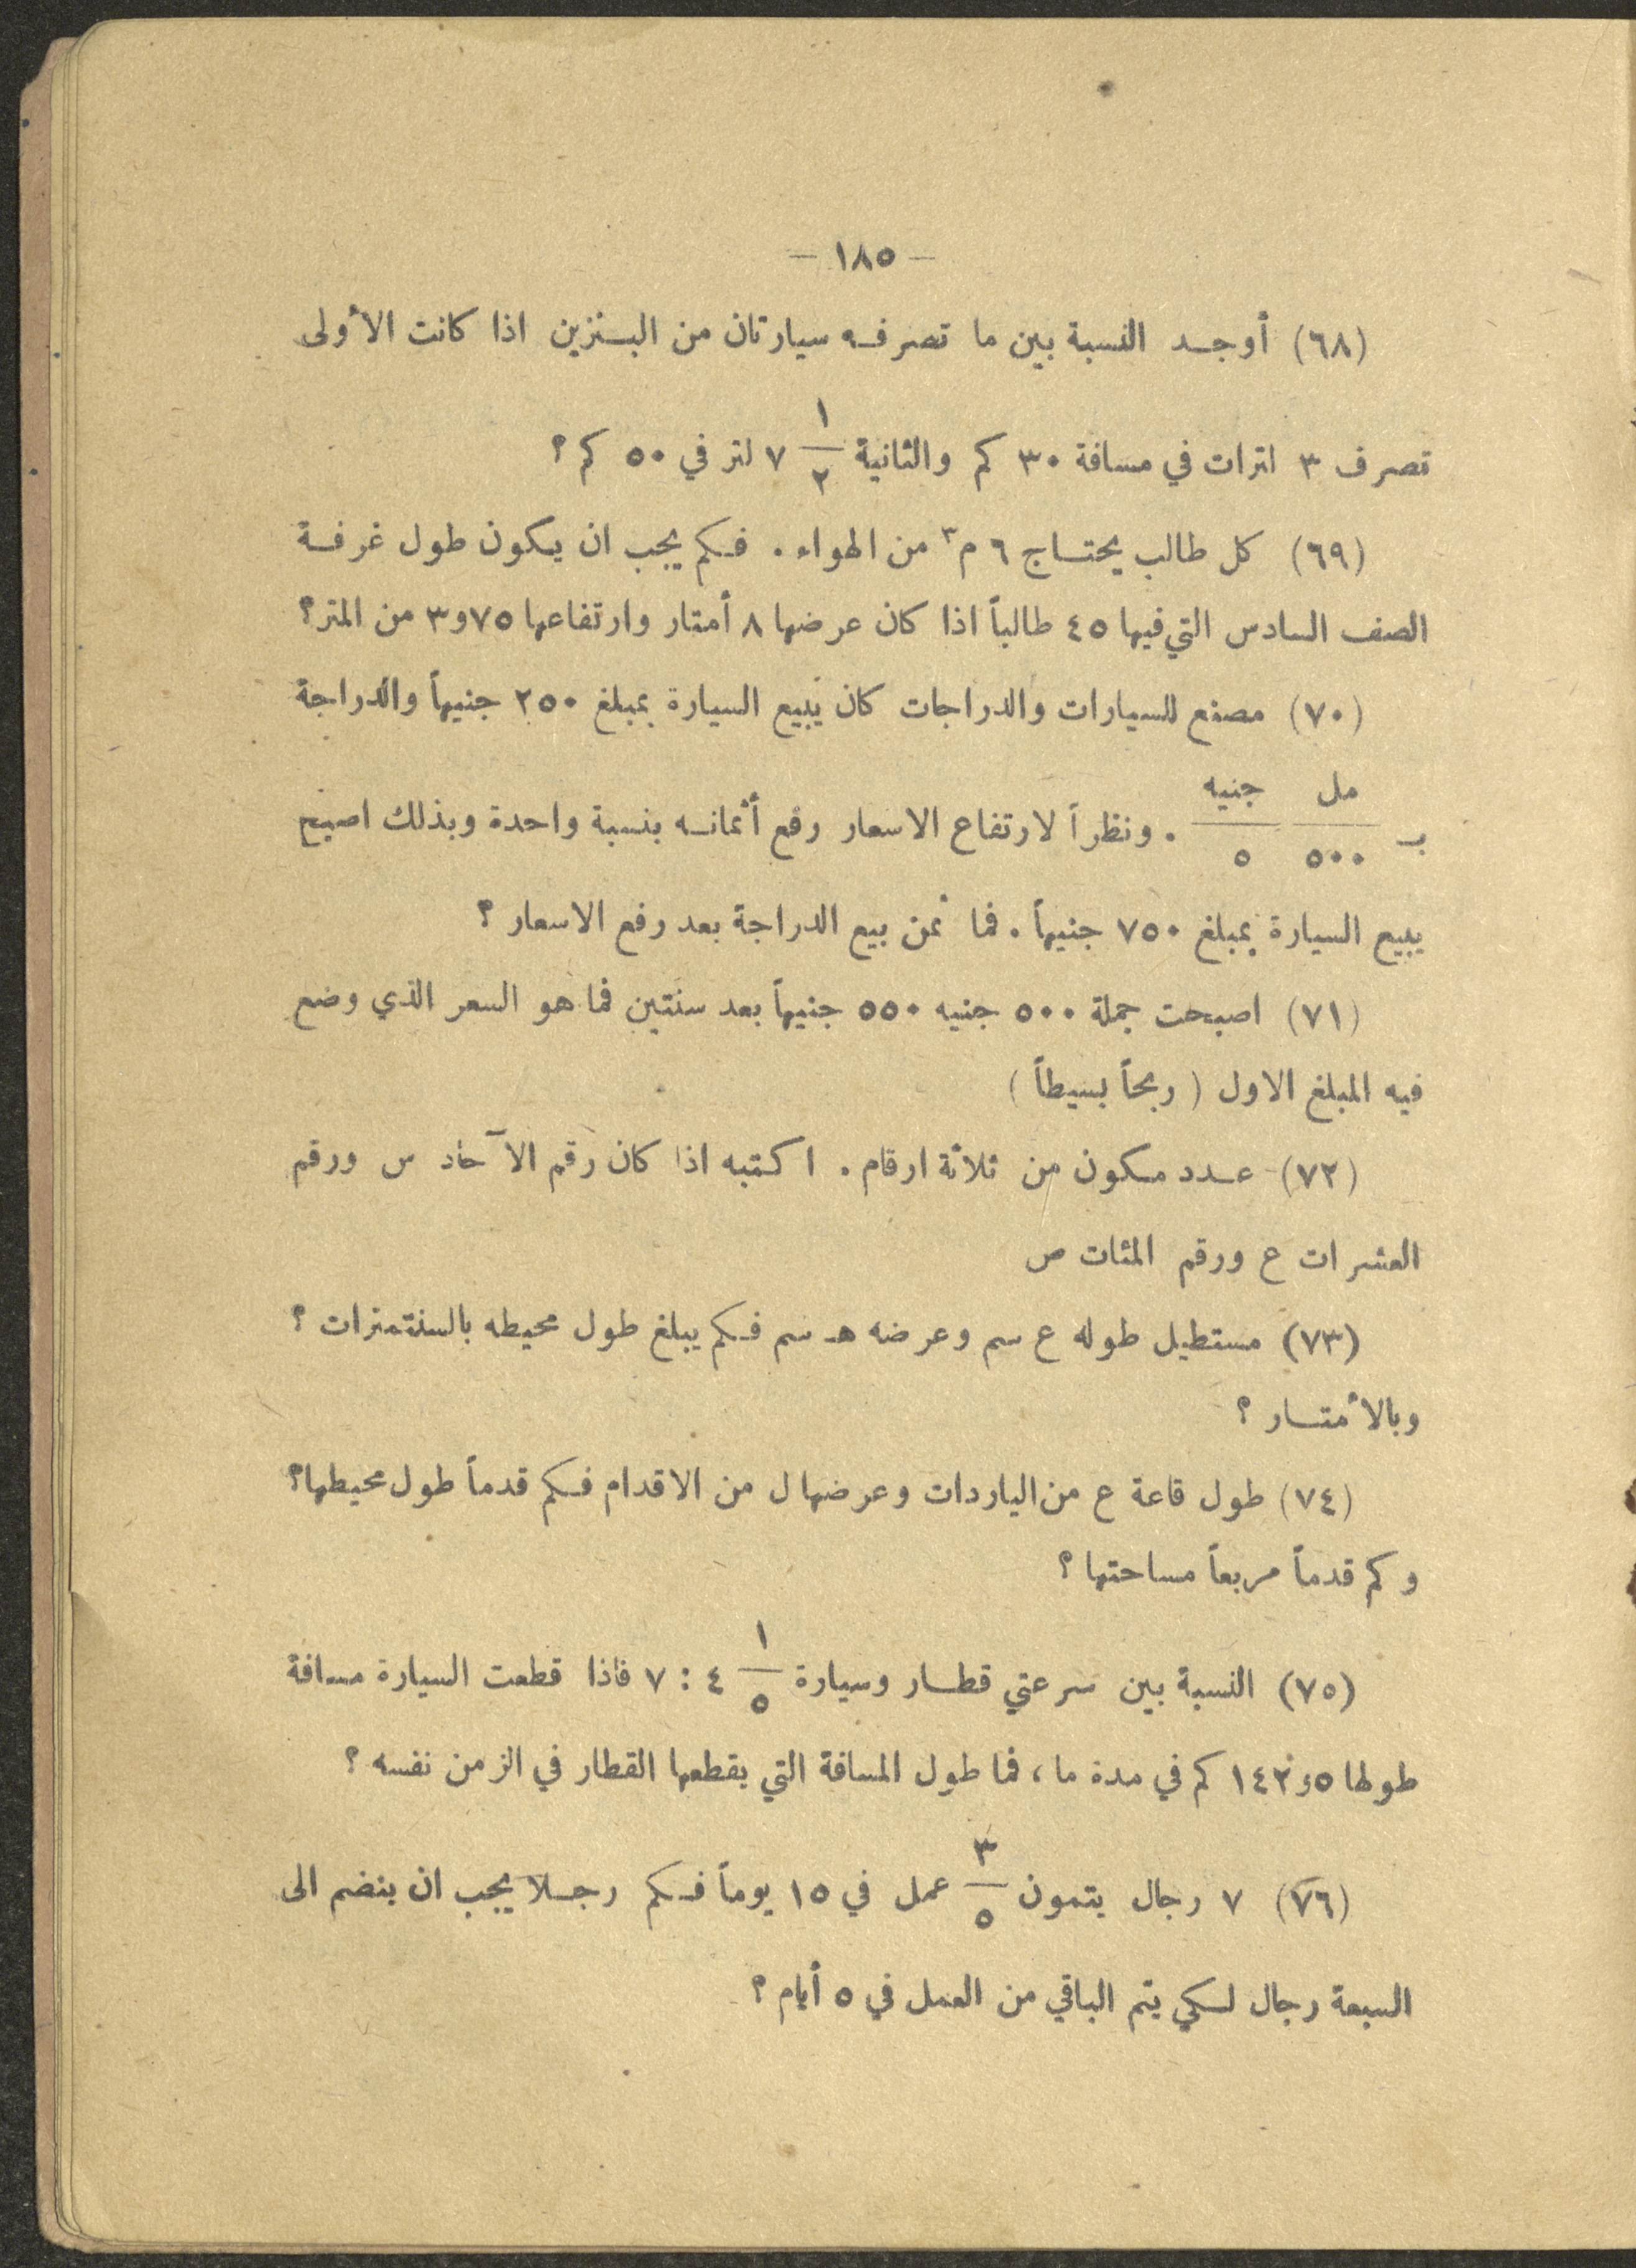 — ١٨٥ —
(٦٨) أوجد النسبة بين ما تصرفه سيارتان من البنزين اذا كانت الأولى
تصرف ٣ لترات في مسافة ٣٠ كم والثانية ١/٢ ٧ لتر في ٥٠ كم ؟
(٦٩) كل طالب يحتاج ٦ م٣ من الهواء . فكم يجب ان يكون طول غرفة
الصف السادس التي فيها ٤٥ طالباً اذا كان عرضها ٨ أمتار وارتفاعها ٧٥و٣ من المتر؟
(٧٠) مصنع للسيارات والدراجات كان يبيع السيارة بمبلغ ٢٥٠ جنيهاً والدراجة
مل جنيه
بـ ٥٠٠ ٥ . ونظراً لارتفاع الاسعار رفع أثمانه بنسبة واحدة وبذلك اصبح
يبيع السيارة بمبلغ ٧٥٠ جنيهاً . فما ثمن بيع الدراجة بعد رفع الاسعار ؟
(٧١) اصبحت جملة ٥٠٠ جنيه ٥٥٠ جنيهاً بعد سنتين فما هو السعر الذي وضع
فيه المبلغ الاول ( ربحاً بسيطاً )
(٧٢) عدد مكون من ثلاثة ارقام . اكتبه اذا كان رقم الآحاد س ورقم
العشرات ع ورقم المئات ص
(٧٣) مستطيل طوله ع سم وعرضه هـ سم فكم يبلغ طول محيطه بالسنتمترات ؟
وبالأمتار ؟
(٧٤) طول قاعة ع من الياردات وعرضها ل من الاقدام فكم قدماً طول محيطها؟
وكم قدماً مربعاً مساحتها ؟
(٧٥) النسبة بين سرعتي قطار وسيارة ١/٥ ٤ : ٧ فاذا قطعت السيارة مسافة
طولها ٥و١٤٢ كم في مدة ما ، فما طول المسافة التي يقطعها القطار في الزمن نفسه ؟
(٧٦) ٧ رجال يتمون ٣/٥ عمل في ١٥ يوماً فكم رجلا يجب ان ينضم الى
السبعة رجال لكي يتم الباقي من العمل في ٥ أيام ؟